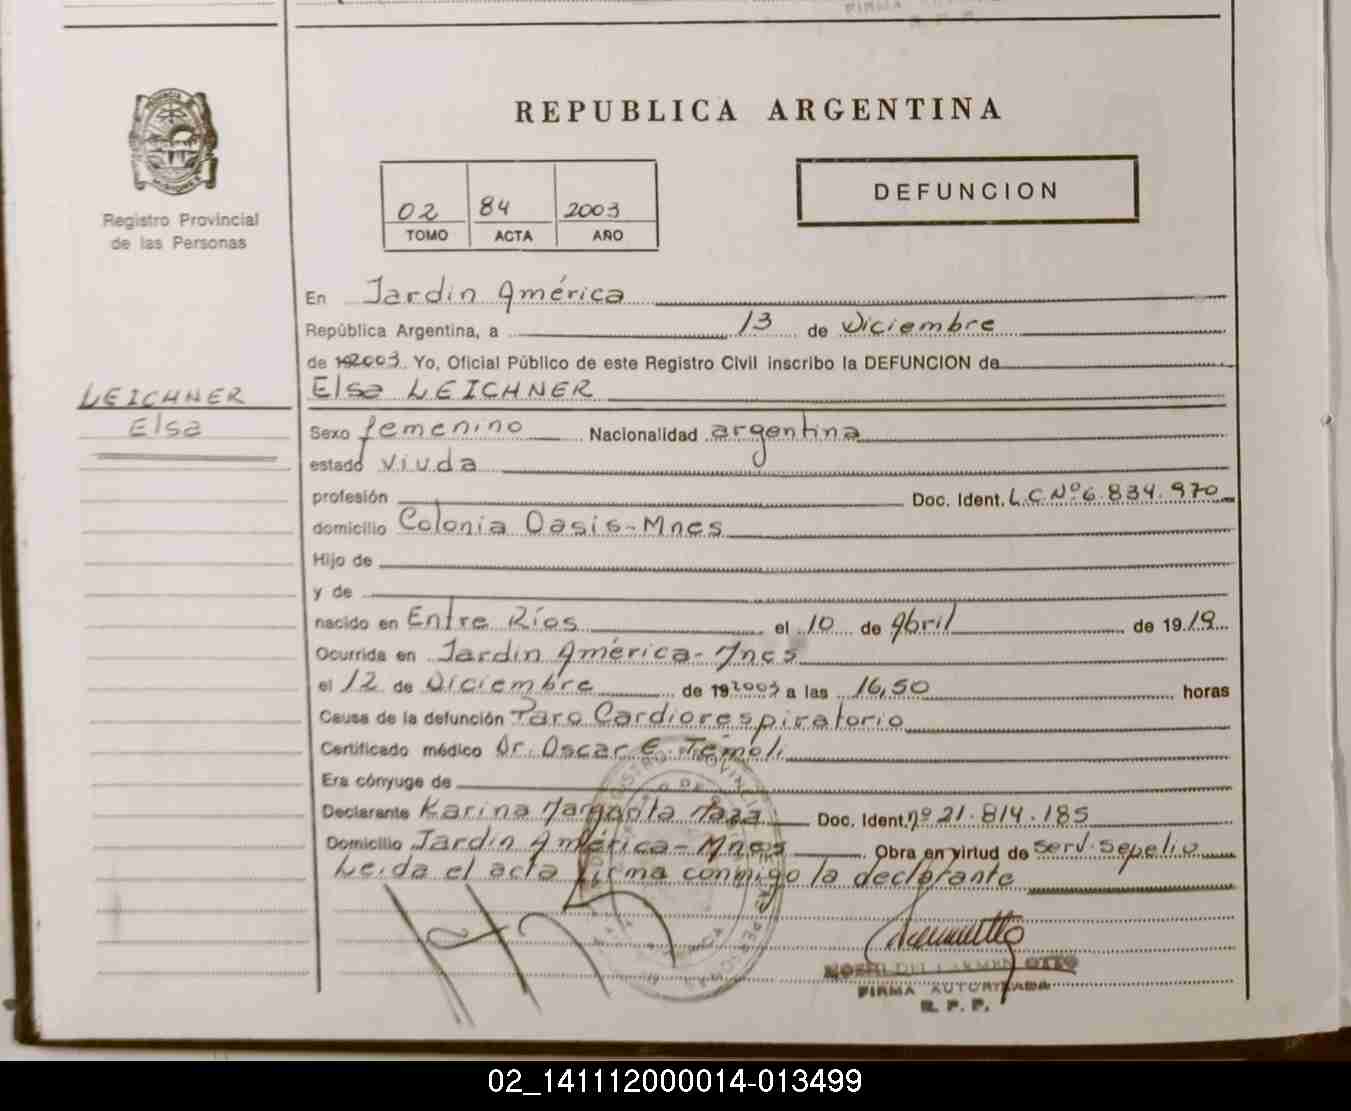 REPUBLICA ARGENTINA
DEFUNCION
02 84 2003
TOMO ACTA AÑO
Registro Provincial
de las Personas
En Jardin América
República Argentina, a 13 de Diciembre
de 192003. Yo, Oficial Público de este Registro Civil inscribo la DEFUNCION de
LEICHNER
Elsa
Elsa LEICHNER
Sexo femenino Nacionalidad argentina
estado viuda
profesión Doc. Ident. L.C.Nº6.834.970
domicilio Colonia Oasis-Mnes
Hijo de
y de
nacido en Entre Ríos el 10 de Abril de 1919
Ocurrida en Jardin América-Mnes
el 12 de Diciembre de 192003 a las 16,50 horas
Causa de la defunción Paro Cardiorespiratorio
Certificado médico Dr. Oscar E. Témoli
Era cónyuge de
Declarante Karina Doc. Ident. nº 21.814.185
Domicilio Jardin América-Mnes Obra en virtud de Serv. Sepelio
Leida el acta firma conmigo la declarante
DEL CARMEN OTTO
FIRMA AUTORIZADA
R. P. P.
02_141112000014-013499